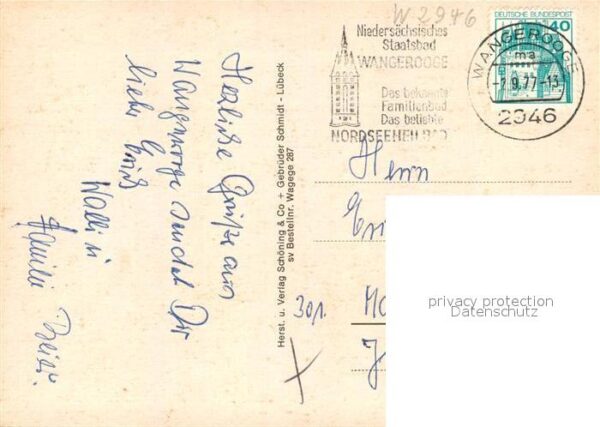 W 2946
Niedersächsisches
Staatsbad
WANGEROOGE
Das bekannte
Familienbad
Das beliebte
NORDSEEHEILBAD
DEUTSCHE BUNDESPOST
40
WANGEROOGE
ma
-7.9.77-13
2946
Herzliche Grüße aus
Wangerooge sendet Dir
liebe
Walli u
Familie
Herst. u. Verlag Schöning & Co + Gebrüder Schmidt - Lübeck
sv Bestellnr. Wagege 287
Herrn
301
privacy protection
Datenschutz